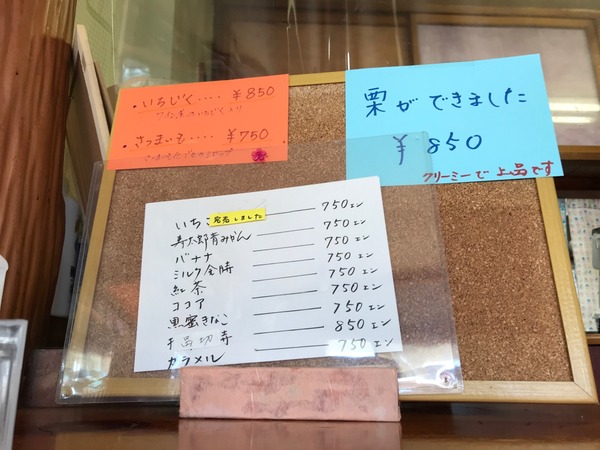 ・いちじく‥‥ ￥850
・さつまいも‥ ￥750
栗ができました
￥850
クリーミーで上品です
いちご 完売しました 750エン
寿太郎青みかん 750エン
バナナ 750エン
ミルク金時 750エン
紅茶 750エン
ココア 750エン
黒蜜きなこ 750エン
850エン
カラメル 750エン